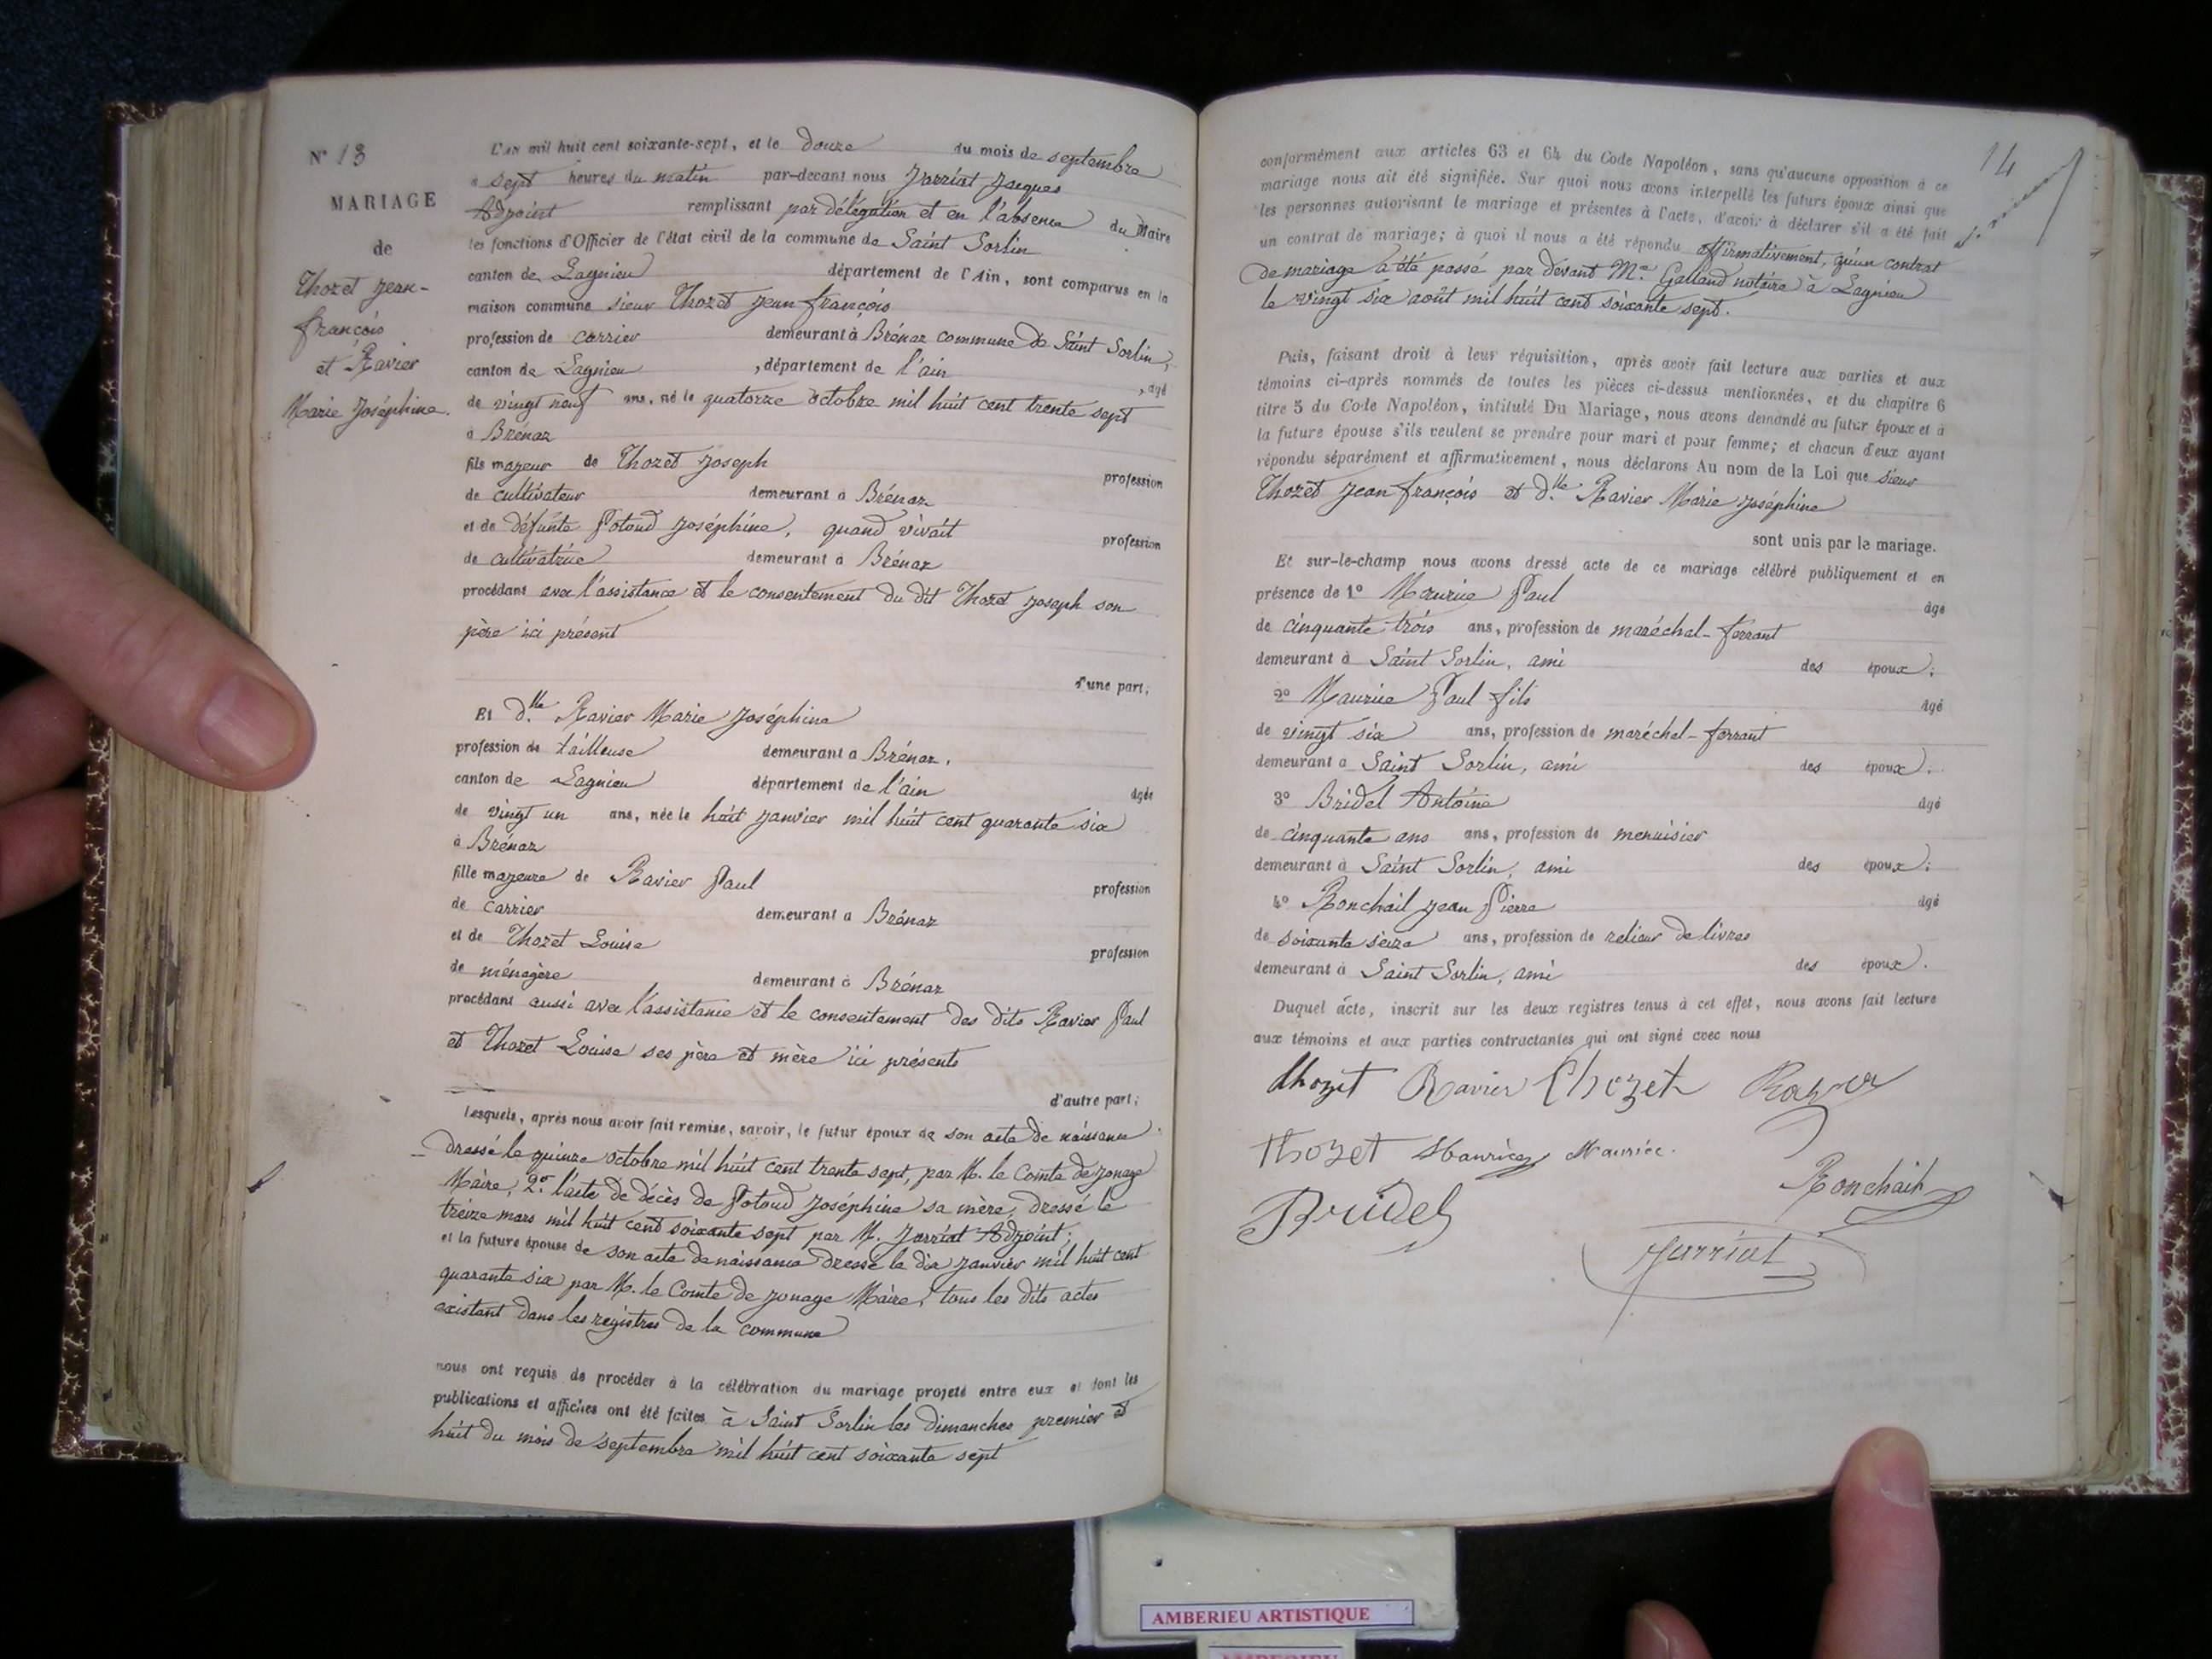 N° 13
MARIAGE
de
Thozet Jean-
françois
et Ravier
Marie Joséphine.
L'AN mil huit cent soixante-sept, et le douze du mois de septembre
à sept heures du matin par-devant nous Jarriat Jacques
Adjoint remplissant par délégation et en l'absence du Maire
les fonctions d'Officier de l'état civil de la commune de Saint Sorlin
canton de Lagnieu département de l'Ain, sont comparus en la
maison commune sieur Thozet Jean françois
profession de carrier demeurant à Brénaz commune de Saint Sorlin,
canton de Lagnieu, département de l'ain, âgé
de vingt neuf ans, né le quatorze octobre mil huit cent trente sept
à Brénaz
fils majeur de Thozet Joseph profession
de cultivateur demeurant à Brénaz
et de défunte Potoud Joséphine, quand vivait profession
de cultivatrice demeurant à Brénaz
procédant avec l'assistance et le consentement du dit Thozet Joseph son
père ici présent
d'une part;
Et d.lle Ravier Marie Joséphine
profession de tailleuse demeurant à Brénaz,
canton de Lagnieu département de l'ain âgée
de vingt un ans, née le huit janvier mil huit cent quarante six
à Brénaz
fille majeure de Ravier Paul profession
de carrier demeurant à Brénaz
et de Thozet Louise profession
de ménagère demeurant à Brénaz
procédant aussi avec l'assistance et le consentement des dits Ravier Paul
et Thozet Louise ses père et mère ici présents
d'autre part;
Lesquels, après nous avoir fait remise, savoir, le futur époux de son acte de naissance
dressé le quinze octobre mil huit cent trente sept, par M. le Comte de Jonage
Maire, 2° l'acte de décès de Potoud Joséphine sa mère, dressé le
treize mars mil huit cent soixante sept par M. Jarriat Adjoint;
et la future épouse de son acte de naissance dressé le dix janvier mil huit cent
quarante six par M. le Comte de Jonage Maire, tous les dits actes
existant dans les registres de la commune
nous ont requis de procéder à la célébration du mariage projeté entre eux et dont les
publications et affiches ont été faites à Saint Sorlin les dimanches premier et
huit du mois de septembre mil huit cent soixante sept
14
conformément aux articles 63 et 64 du Code Napoléon, sans qu'aucune opposition à ce
mariage nous ait été signifiée. Sur quoi nous avons interpellé les futurs époux ainsi que
les personnes autorisant le mariage et présentes à l'acte, d'avoir à déclarer s'il a été fait
un contrat de mariage; à quoi il nous a été répondu affirmativement, qu'un contrat
de mariage a été passé par devant Me. Galland notaire à Lagnieu
le vingt six août mil huit cent soixante sept.
Puis, faisant droit à leur réquisition, après avoir fait lecture aux parties et aux
témoins ci-après nommés de toutes les pièces ci-dessus mentionnées, et du chapitre 6
titre 5 du Code Napoléon, intitulé Du Mariage, nous avons demandé au futur époux et à
la future épouse s'ils veulent se prendre pour mari et pour femme; et chacun d'eux ayant
répondu séparément et affirmativement, nous déclarons Au nom de la Loi que sieur
Thozet Jean françois et d.lle Ravier Marie Joséphine
sont unis par le mariage.
Et sur-le-champ nous avons dressé acte de ce mariage célébré publiquement et en
présence de 1° Maurice Paul âgé
de cinquante trois ans, profession de maréchal-ferrant
demeurant à Saint Sorlin, ami des époux;
2° Maurice Paul fils âgé
de vingt six ans, profession de maréchal-ferrant
demeurant à Saint Sorlin, ami des époux.
3° Bridel Antoine âgé
de cinquante ans ans, profession de menuisier
demeurant à Saint Sorlin, ami des époux;
4° Ronchail Jean Pierre âgé
de soixante seize ans, profession de relieur de livres
demeurant à Saint Sorlin, ami des époux.
Duquel acte, inscrit sur les deux registres tenus à cet effet, nous avons fait lecture
aux témoins et aux parties contractantes qui ont signé avec nous
thozet Ravier Thozet Ravier
thozet Maurice Maurice.
Ronchail
Bridel
Jarriat
AMBERIEU ARTISTIQUE
AMBERIEU